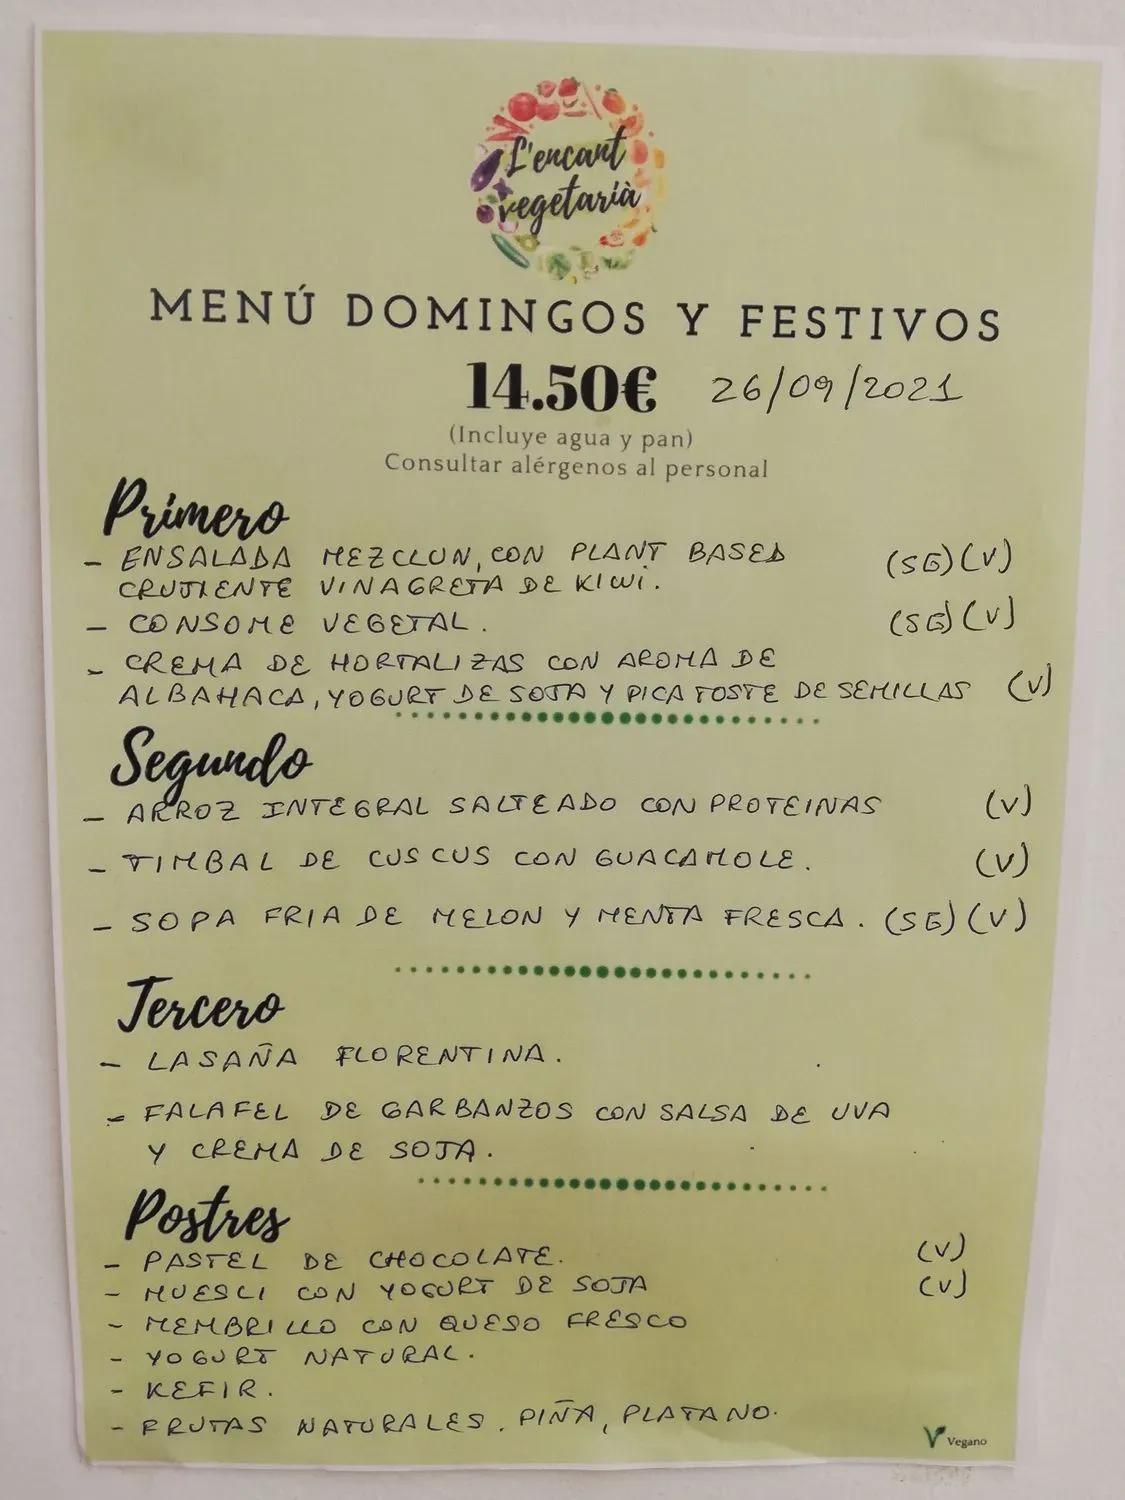 L'encant
vegetarià
MENÚ DOMINGOS Y FESTIVOS
14.50€ 26/09/2021
(Incluye agua y pan)
Consultar alérgenos al personal
Primero
- ENSALADA MEZCLUN, CON PLANT BASED (SG) (V)
CRUJIENTE VINAGRETA DE KIWI.
- CONSOME VEGETAL. (SG) (V)
- CREMA DE HORTALIZAS CON AROMA DE
ALBAHACA, YOGURT DE SOJA Y PICATOSTE DE SEMILLAS (V)
Segundo
- ARROZ INTEGRAL SALTEADO CON PROTEINAS (V)
- TIMBAL DE CUSCUS CON GUACAMOLE. (V)
- SOPA FRIA DE MELON Y MENTA FRESCA. (SG) (V)
Tercero
- LASAÑA FLORENTINA.
- FALAFEL DE GARBANZOS CON SALSA DE UVA
Y CREMA DE SOJA.
Postres
- PASTEL DE CHOCOLATE. (V)
- MUESLI CON YOGURT DE SOJA (V)
- MEMBRILLO CON QUESO FRESCO
- YOGURT NATURAL.
- KEFIR.
- FRUTAS NATURALES. PIÑA, PLATANO.
Vegano